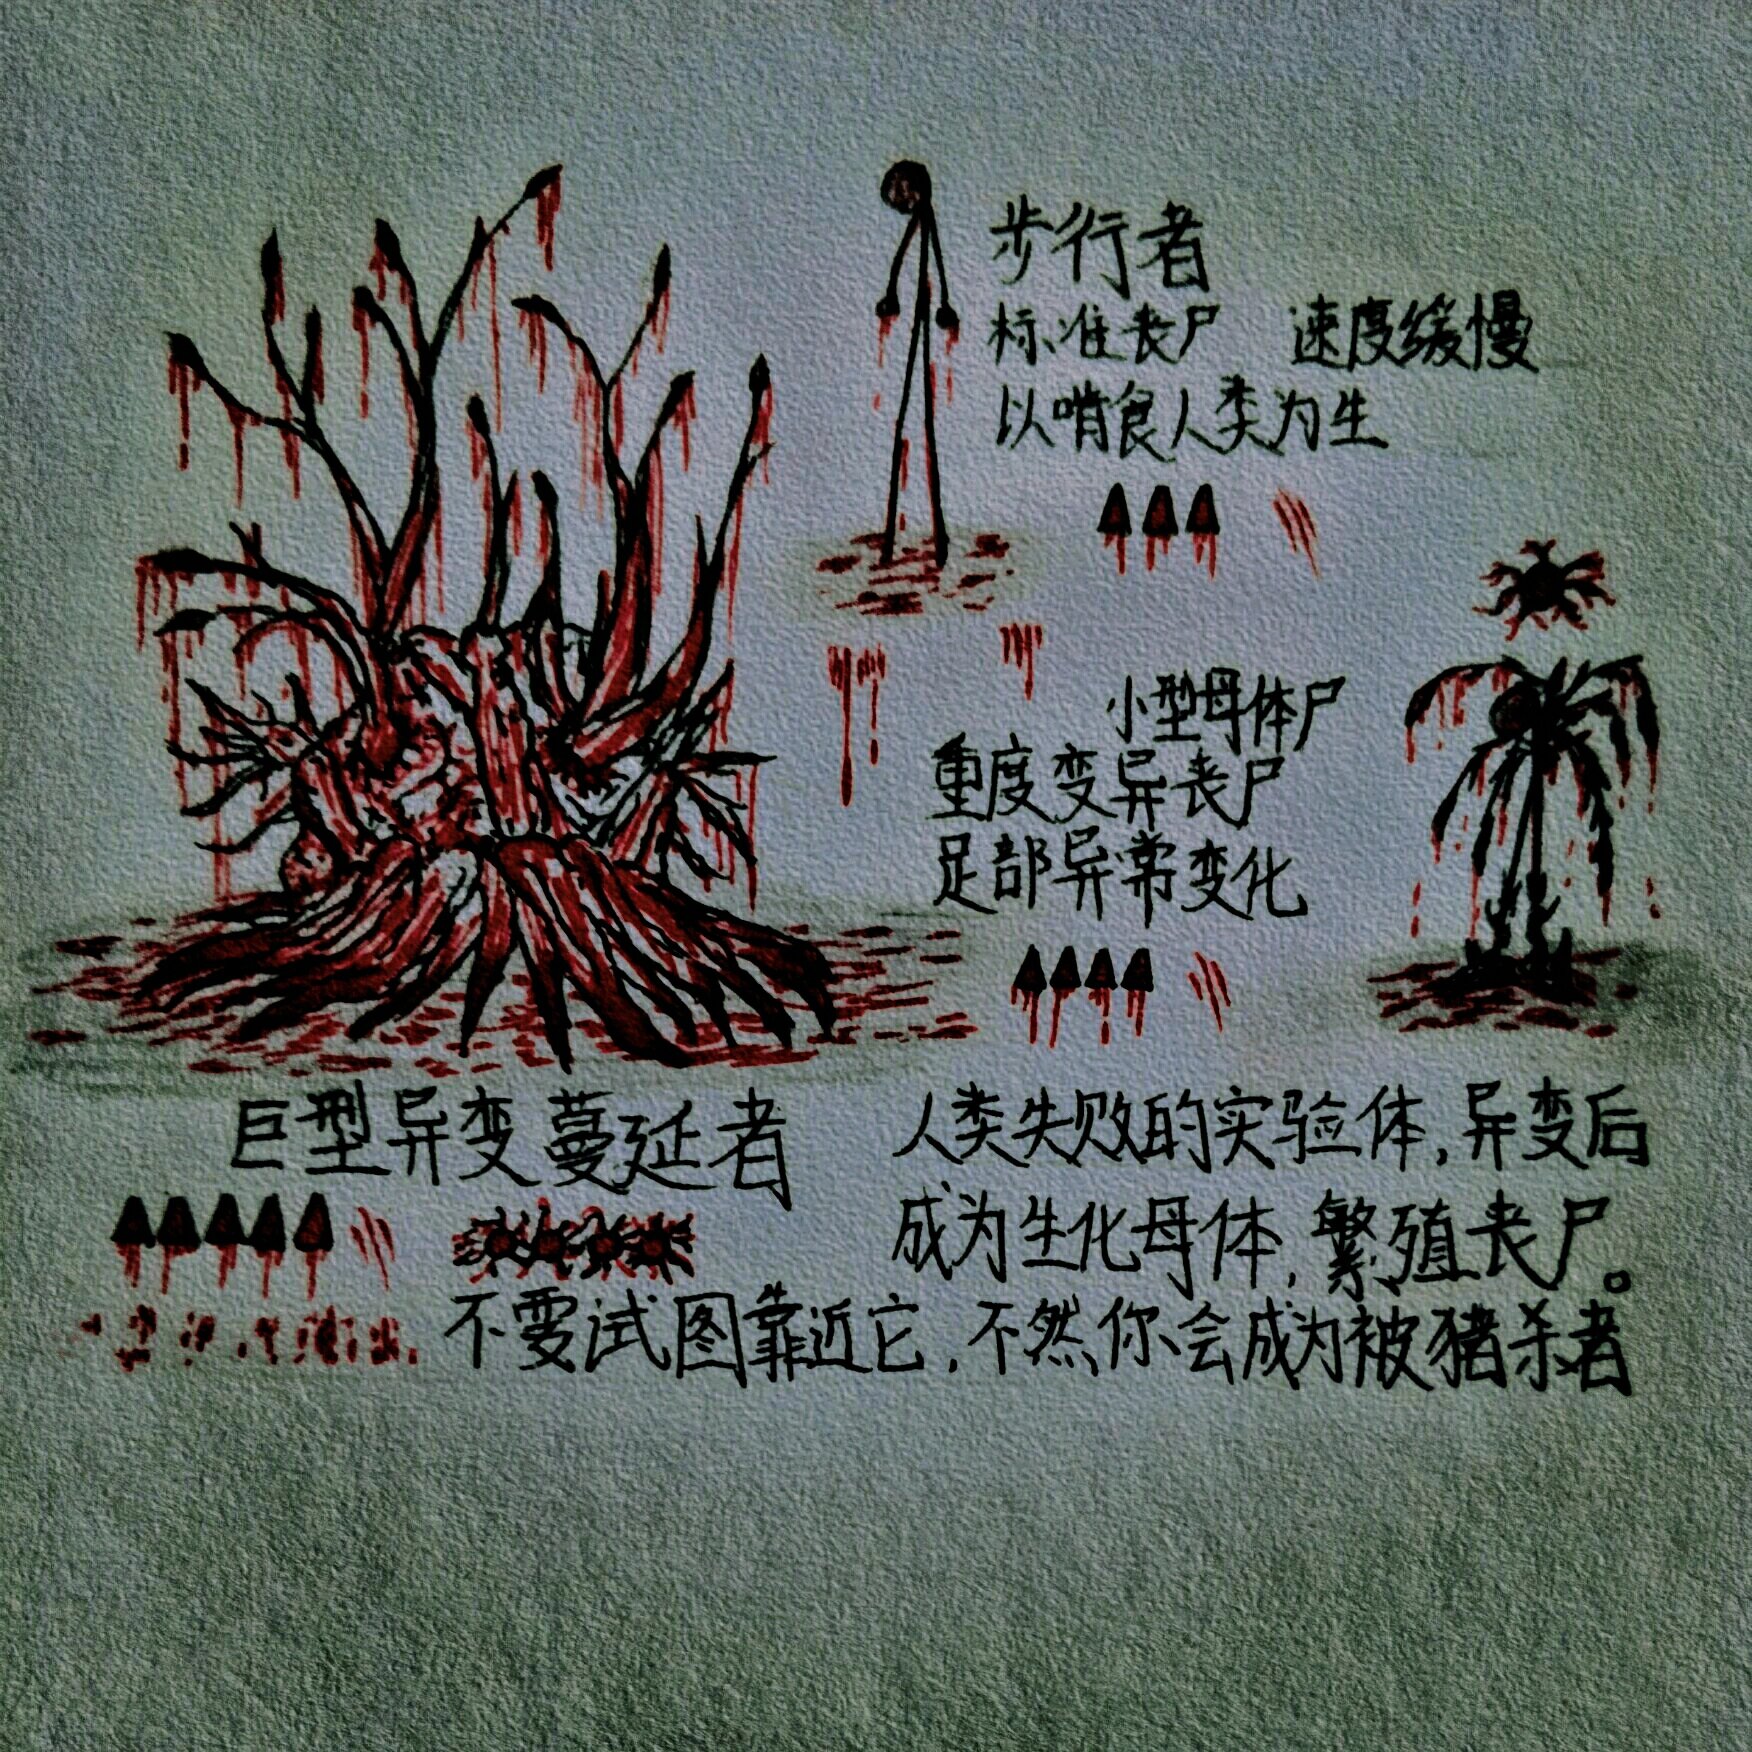 步行者
标准丧尸 速度缓慢
以啃食人类为生
小型母体尸
重度变异丧尸
足部异常变化
巨型异变蔓延者
人类失败的实验体,异变后
成为生化母体,繁殖丧尸。
不要试图靠近它,不然你会成为被猪杀者